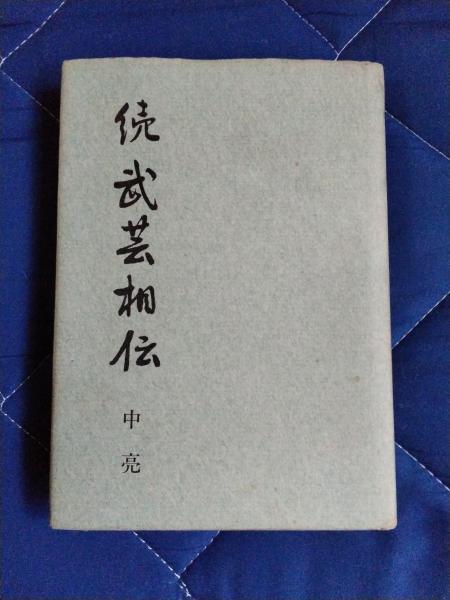 続武芸相伝
中亮